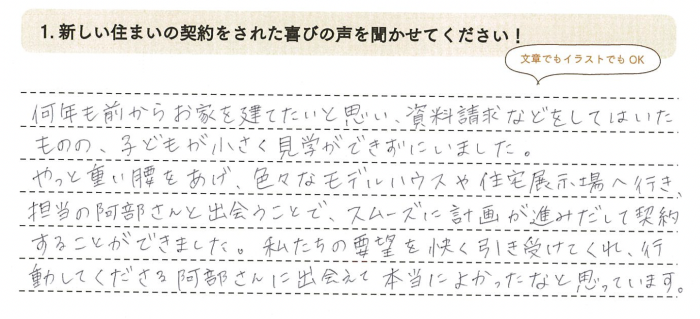 1. 新しい住まいの契約をされた喜びの声を聞かせてください！
文章でもイラストでもOK
何年も前からお家を建てたいと思い、資料請求などをしてはいた
ものの、子どもが小さく見学ができずにいました。
やっと重い腰をあげ、色々なモデルハウスや住宅展示場へ行き、
担当の阿部さんと出会うことで、スムーズに計画が進みだして契約
することができました。私たちの要望を快く引き受けてくれ、行
動してくださる阿部さんに出会えて本当によかったなと思っています。